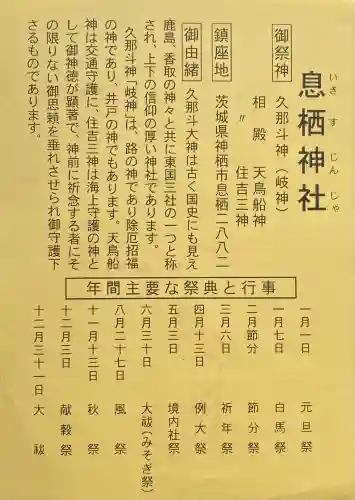 息栖神社
いきすじんじゃ
御祭神 久那斗神(岐神)
相殿 天鳥船神
〃 住吉三神
鎮座地 茨城県神栖市息栖二八八二
御由緒 久那斗大神は古く国史にも見え
鹿島、香取の神々と共に東国三社の一つと称
され、上下の信仰の厚い神社であります。
久那斗神「岐神」は、路の神であり除厄招福
の神であり、井戸の神でもあります。天鳥船
神は交通守護に、住吉三神は海上守護の神と
して御神徳が顕著で、神前に祈念する者にそ
の限りない御恩頼を垂れさせられ御守護下
さるものであります。
年間主要な祭典と行事
一月一日 元旦祭
一月七日 白馬祭
二月節分 節分祭
三月六日 祈年祭
四月十三日 例大祭
五月三日 境内社祭
六月三十日 大祓(みそぎ祭)
八月二十七日 風祭
十一月十三日 秋祭
十二月三日 献穀祭
十二月三十一日 大祓